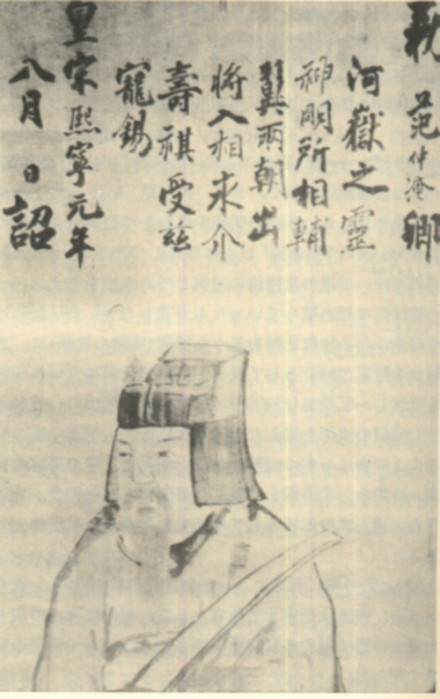 敕 范仲淹卿
河嶽之靈
神明所相輔
翼兩朝出
將入相求介
壽祺受茲
寵錫
皇宋熙寧元年
八月 日詔